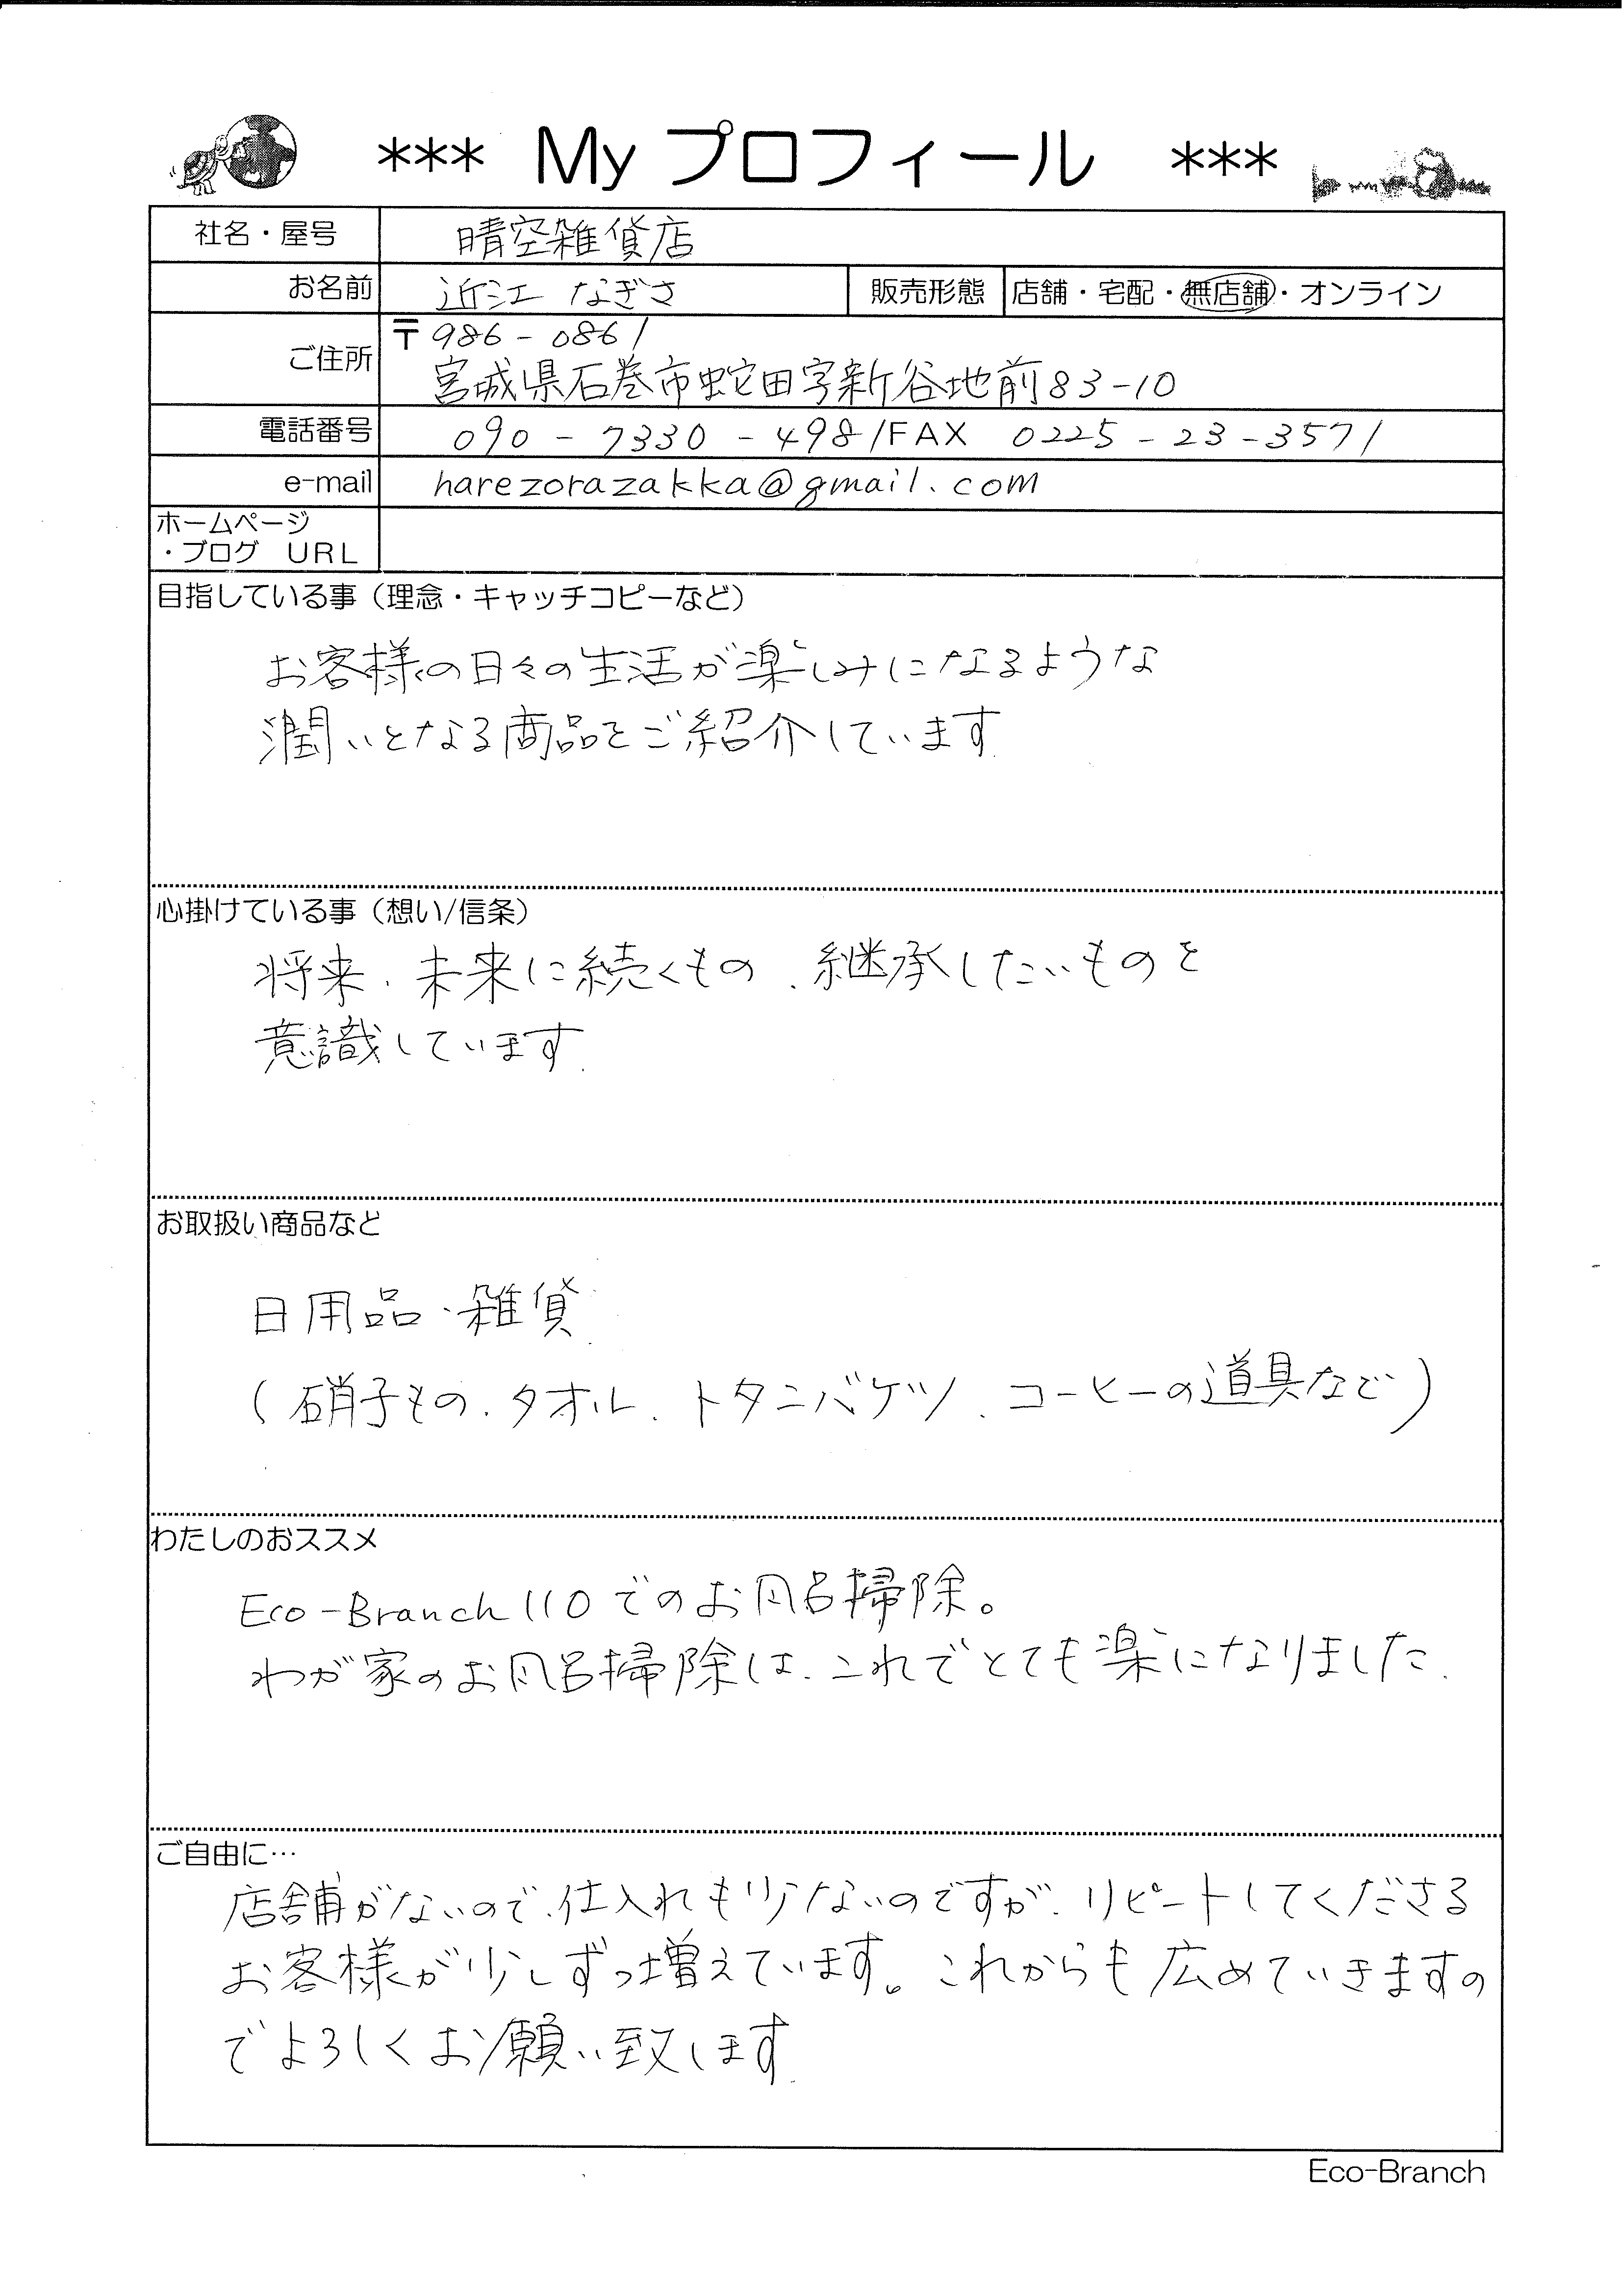 *** My プロフィール ***
社名・屋号 晴空雑貨店
お名前 近江 なぎさ 販売形態 店舗・宅配・無店舗・オンライン
〒986-0861
ご住所 宮城県石巻市蛇田字新谷地前83-10
電話番号 090-7330-4981/FAX 0225-23-3571
e-mail harezorazakka@gmail.com
ホームページ
・ブログ URL
目指している事（理念・キャッチコピーなど）
お客様の日々の生活が楽しみになるような
潤いとなる商品をご紹介しています.
心掛けている事（想い/信条）
将来、未来に続くもの、継承したいものを
意識しています.
お取扱い商品など
日用品・雑貨
(硝子もの、タオル、トタンバケツ、コーヒーの道具など)
わたしのおススメ
Eco-Branch110でのお風呂掃除。
わが家のお風呂掃除は、これでとても楽になりました.
ご自由に…
店舗がないので、仕入れも少ないのですが、リピートしてくださる
お客様が少しずつ増えています。これからも広めていきますの
でよろしくお願い致します.
Eco-Branch